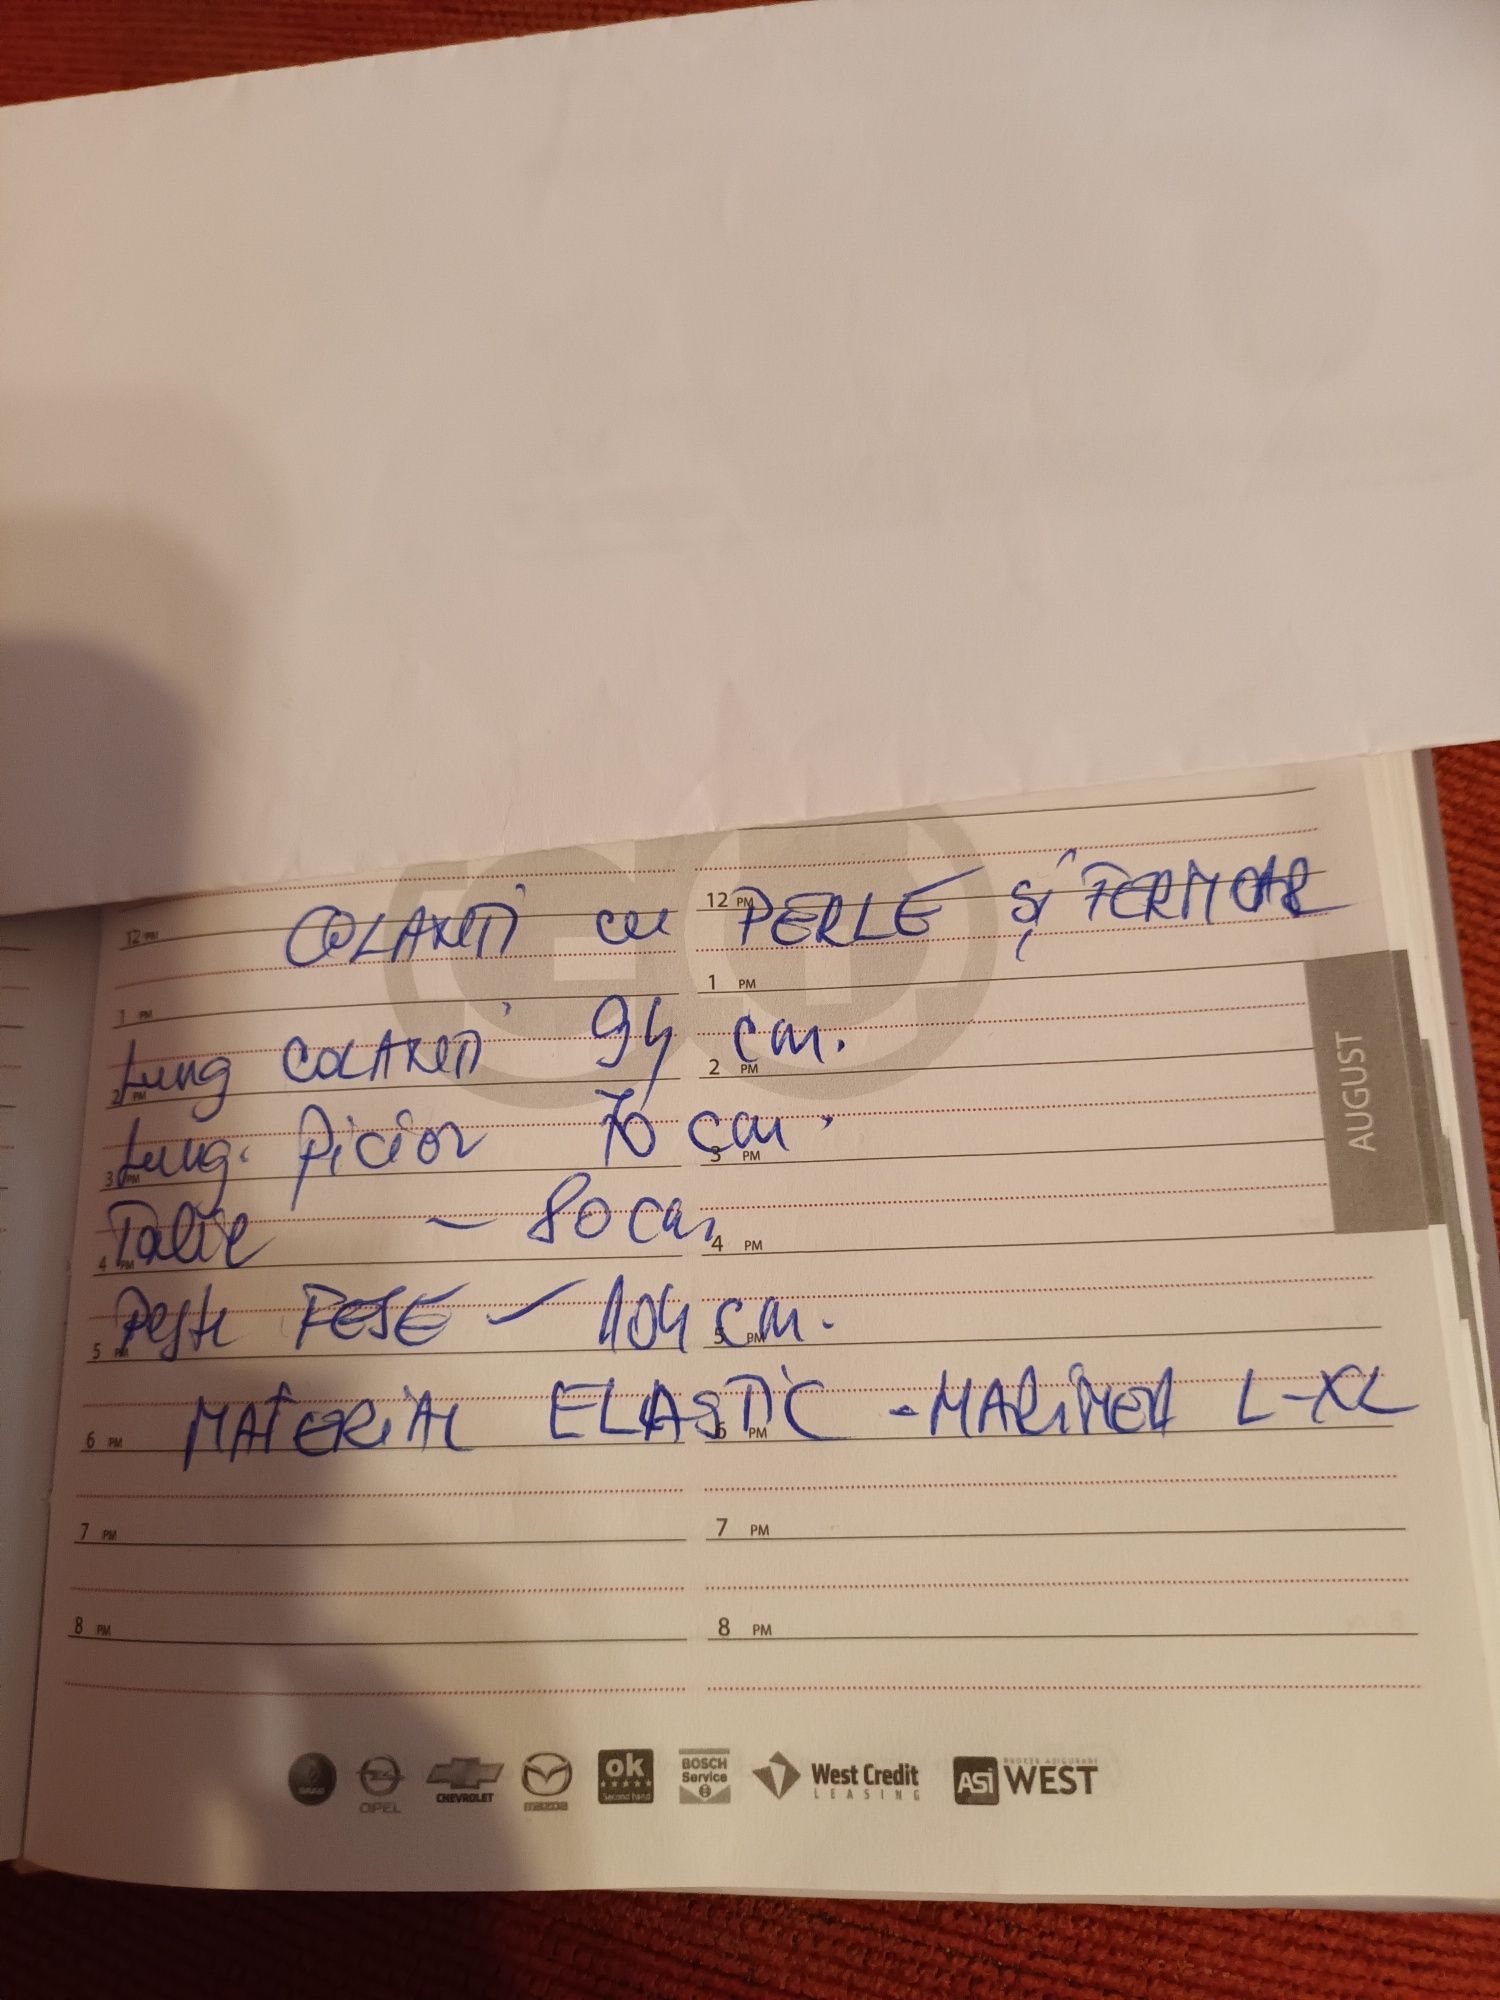 COLANTI cu PERLE și FERMOAR
Lung COLANTI 94 cm.
Lung. Picior 70 cm.
Talie - 80 cm
Peste FESE - 104 cm.
MATERIAL ELASTIC - MARIMEA L-XL
12 PM
12 PM
1 PM
1 PM
2 PM
2 PM
3 PM
3 PM
4 PM
4 PM
5 PM
5 PM
6 PM
6 PM
7 PM
7 PM
8 PM
8 PM
AUGUST
SAAB
OPEL
CHEVROLET
mazda
ok
Second hand
BOSCH
Service
West Credit
LEASING
BROKER ASIGURARE
ASi WEST